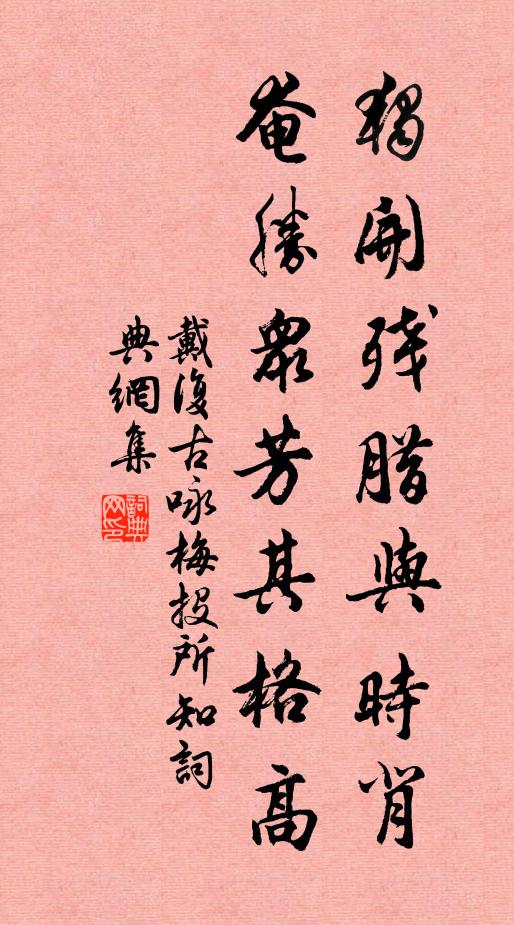 獨開殘腊與時背
奄勝眾芳其格高
戴復古咏梅投所知詞
典網集
詞典網印